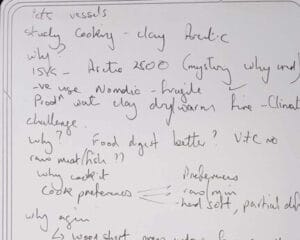 vessels
study Cooking - clay Arctic
why?
15yrs - Arctic 2500 (mystery why and
-ve use Nomadic - fragile
Prod^n wet clay dry/warm fire - Climate
challenge.
why? Food digest better? Vit C no
raw meat/fish??
why cook it Preferences
Cook preferences raw/
hard soft, partial
why again
↳ wood short